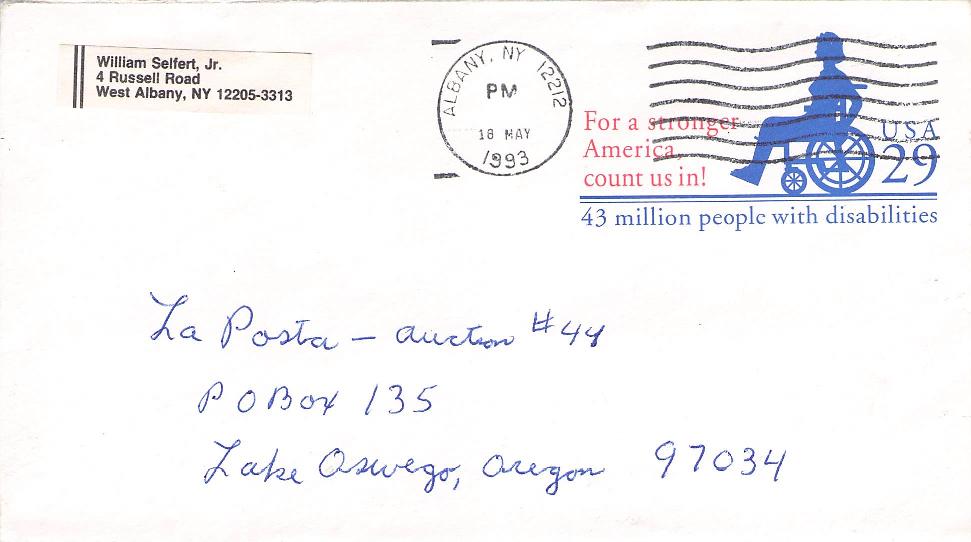 William Selfert, Jr.
4 Russell Road
West Albany, NY 12205-3313
ALBANY, NY 12212
PM
18 MAY
1993
For a stronger
America,
count us in!
USA
29
43 million people with disabilities
La Posta - auction #44
P O Box 135
Lake Oswego, Oregon 97034